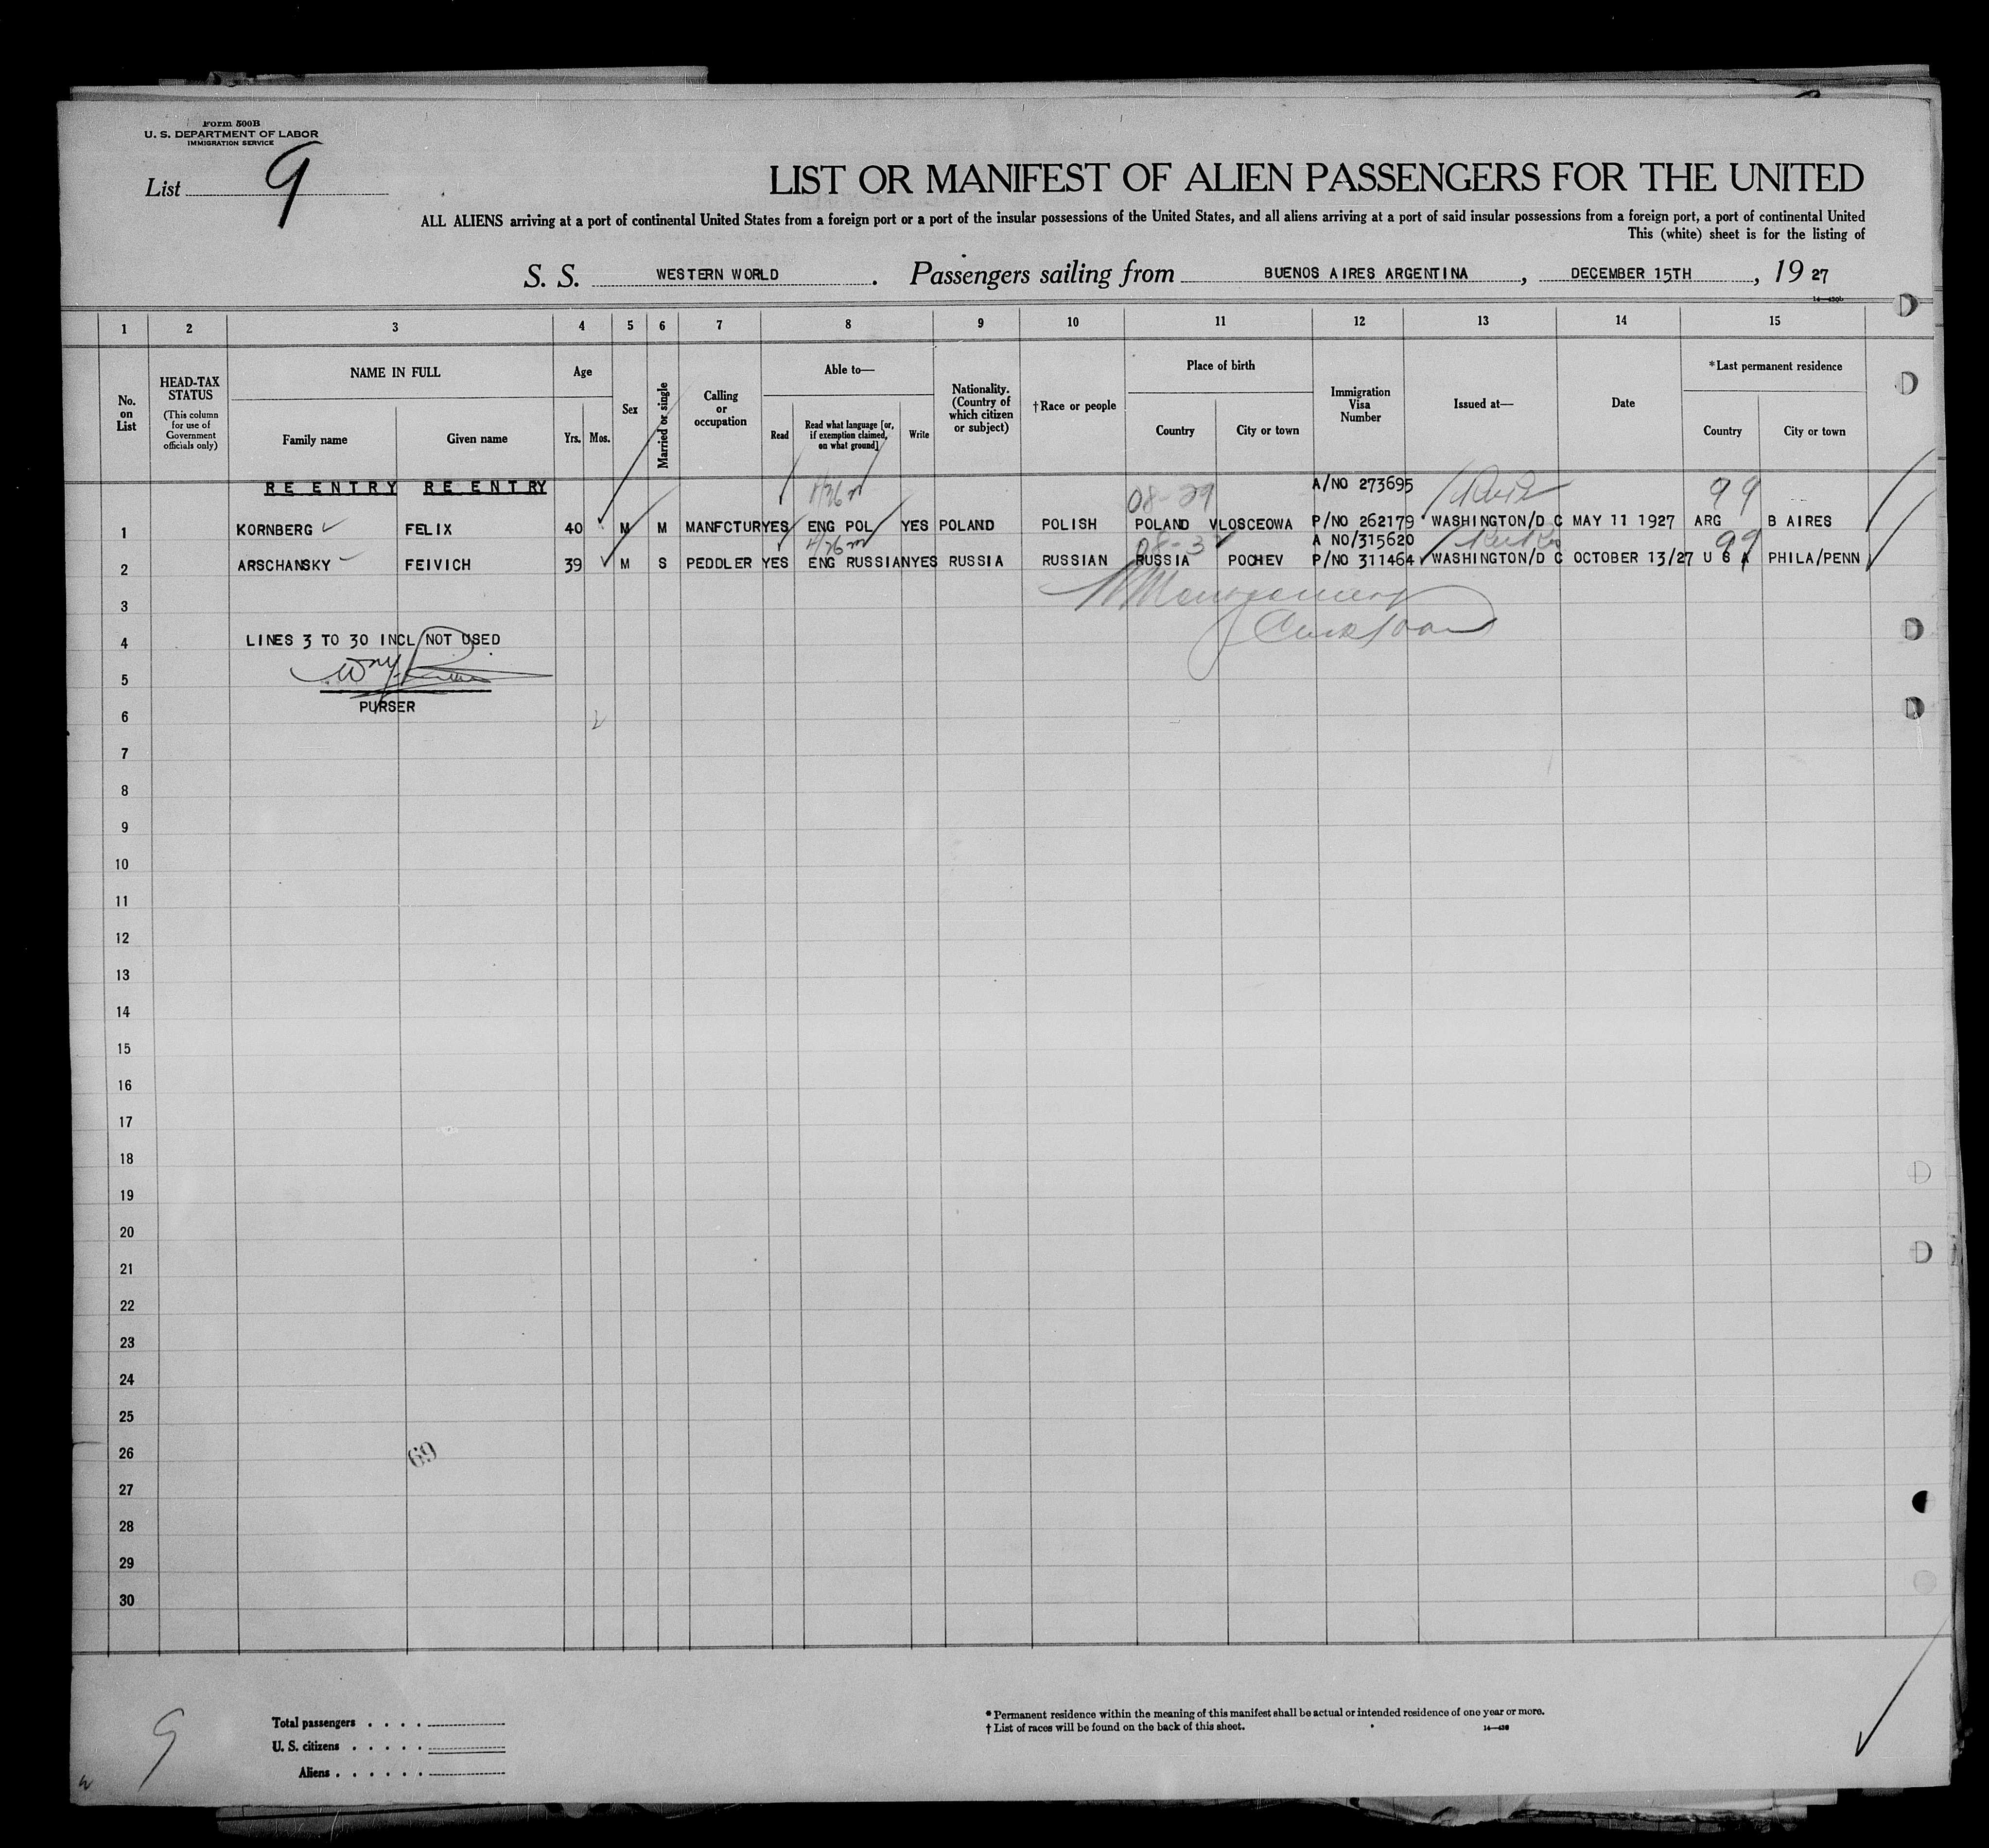 Form 500B
U. S. DEPARTMENT OF LABOR
IMMIGRATION SERVICE
List 9
LIST OR MANIFEST OF ALIEN PASSENGERS FOR THE UNITED
ALL ALIENS arriving at a port of continental United States from a foreign port or a port of the insular possessions of the United States, and all aliens arriving at a port of said insular possessions from a foreign port, a port of continental United
This (white) sheet is for the listing of
S. S. WESTERN WORLD . Passengers sailing from BUENOS AIRES ARGENTINA , DECEMBER 15TH , 19 27
1 2 3 4 5 6 7 8 9 10 11 12 13 14 15
No. on List
HEAD-TAX STATUS
(This column for use of Government officials only)
NAME IN FULL
Family name Given name
Age
Yrs. Mos.
Sex
Married or single
Calling or occupation
Able to—
Read
Read what language [or, if exemption claimed, on what ground]
Write
Nationality. (Country of which citizen or subject)
†Race or people
Place of birth
Country City or town
Immigration Visa Number
Issued at—
Date
*Last permanent residence
Country City or town
RE ENTRY RE ENTRY 08-29 A/NO 273695 99
1 KORNBERG FELIX 40 M M MANFCTUR YES ENG POL YES POLAND POLISH POLAND VLOSCEOWA P/NO 262179 WASHINGTON/D C MAY 11 1927 ARG B AIRES
08-3 A NO/315620 99
2 ARSCHANSKY FEIVICH 39 M S PEDDLER YES ENG RUSSIAN YES RUSSIA RUSSIAN RUSSIA POCHEV P/NO 311464 WASHINGTON/D C OCTOBER 13/27 U S A PHILA/PENN
3
4 LINES 3 TO 30 INCL NOT USED
5
PURSER
6
7
8
9
10
11
12
13
14
15
16
17
18
19
20
21
22
23
24
25
26
69
27
28
29
30
9
Total passengers . . . .
U. S. citizens . . . . .
Aliens . . . . . .
* Permanent residence within the meaning of this manifest shall be actual or intended residence of one year or more.
† List of races will be found on the back of this sheet.